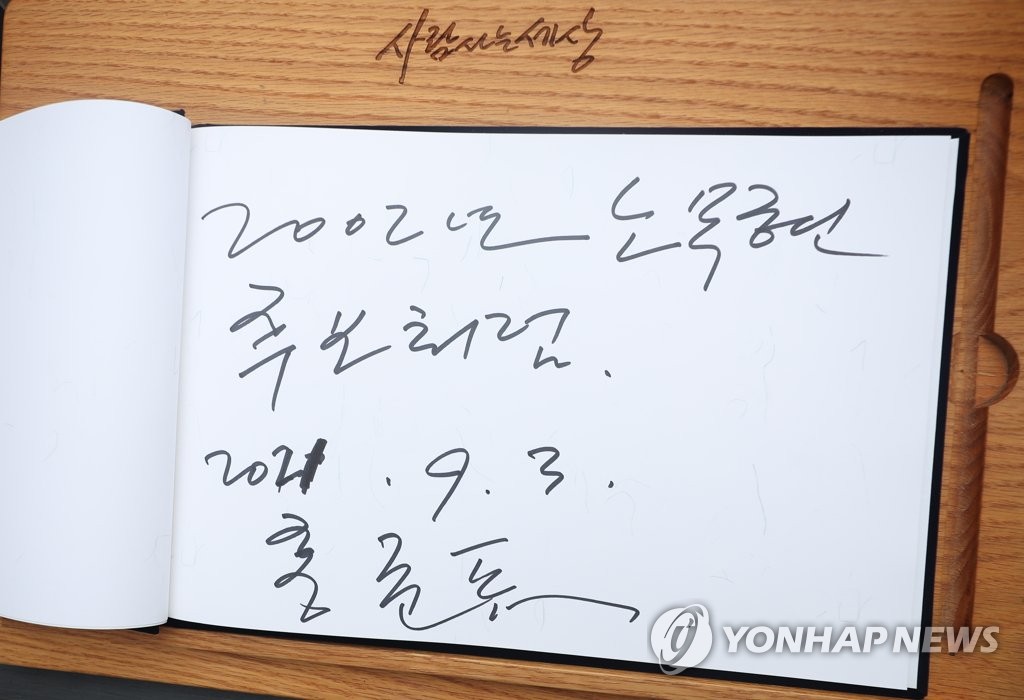 사람사는세상
2002년 노무현
후보처럼.
2021. 9. 3.
홍준표
YONHAP NEWS